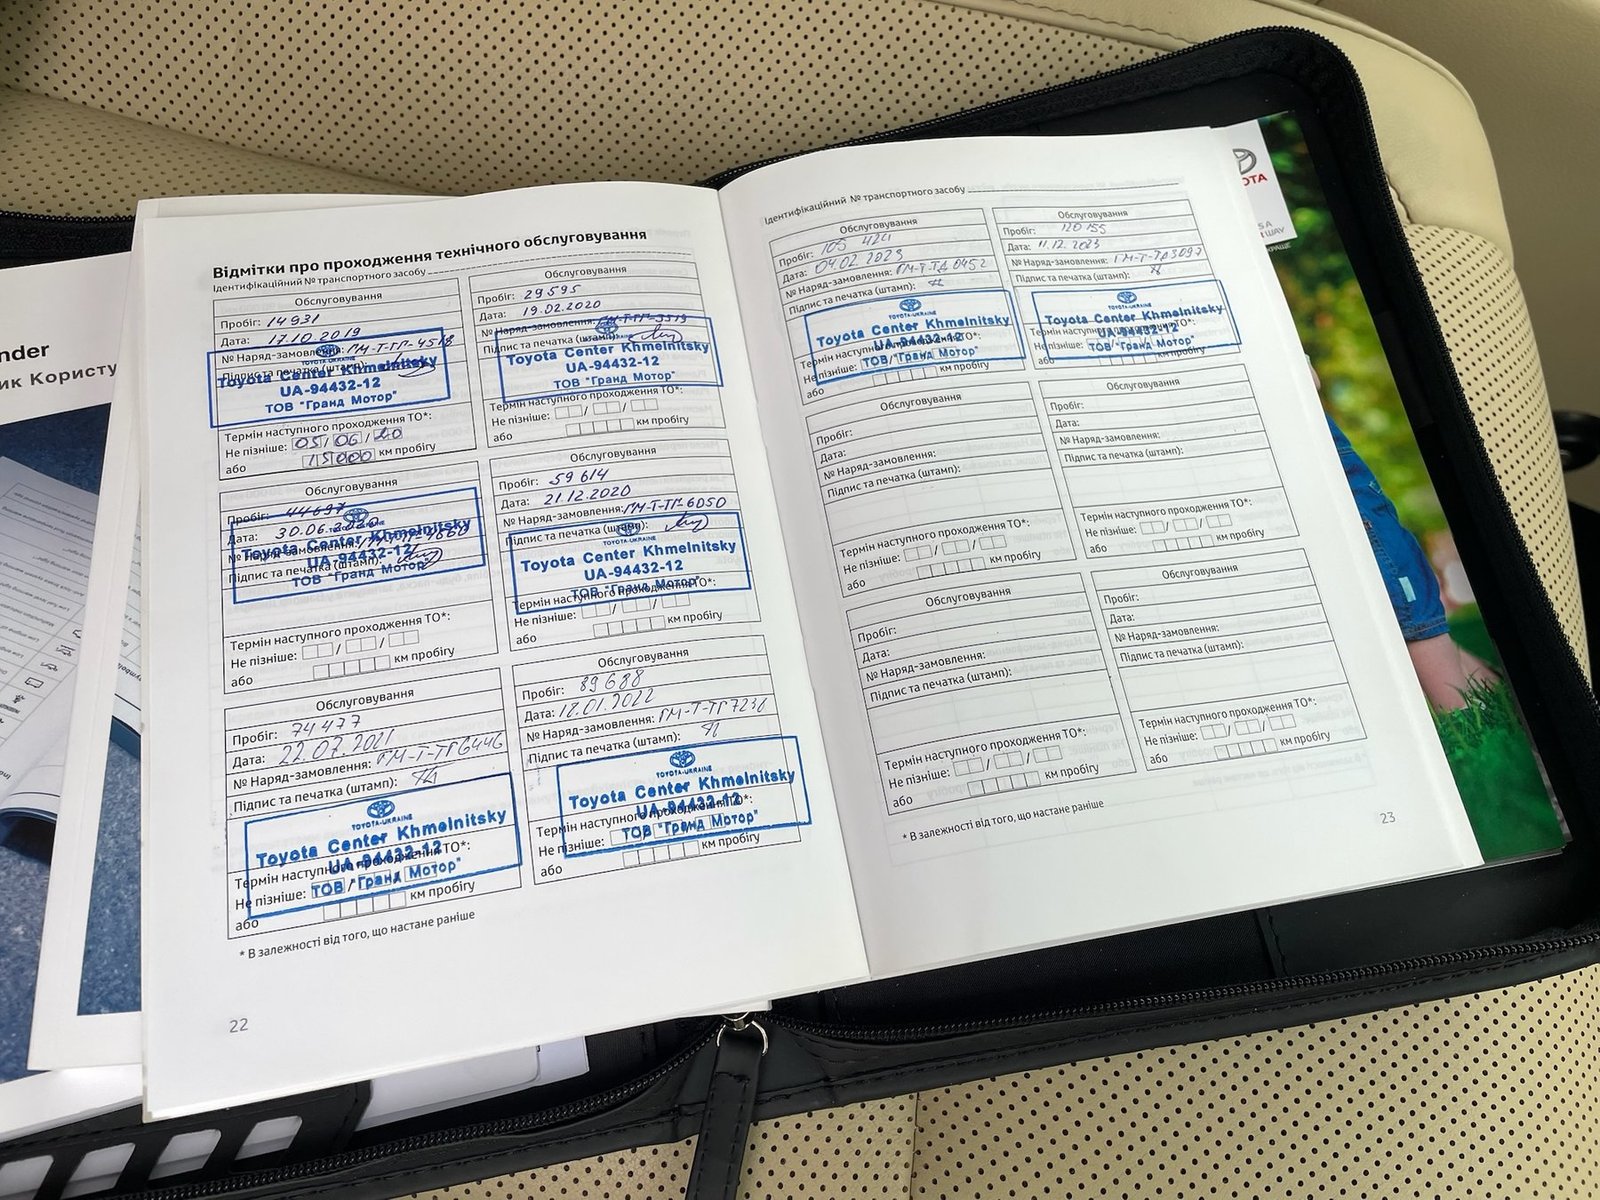 nder
ик Користу
Відмітки про проходження технічного обслуговування
Ідентифікаційний № транспортного засобу
Обслуговування
Пробіг: 14931
Дата: 17.10.2019
№ Наряд-замовлення: ГМ-Т-ТГ-4518
Підпис та печатка (штамп):
Toyota Center Khmelnitsky
UA-94432-12
ТОВ "Гранд Мотор"
Термін наступного проходження ТО*:
Не пізніше: 05/06/20
або 15000 км пробігу
Обслуговування
Пробіг: 29595
Дата: 19.02.2020
№ Наряд-замовлення: ГМ-Т-ТГ-5519
Підпис та печатка (штамп):
Toyota Center Khmelnitsky
UA-94432-12
ТОВ "Гранд Мотор"
Термін наступного проходження ТО*:
Не пізніше: / /
або км пробігу
Обслуговування
Пробіг: 44697
Дата: 30.06.2020
№ Наряд-замовлення: ГМ-Т-ТГ-4860
Підпис та печатка (штамп):
Toyota Center Khmelnitsky
UA-94432-12
ТОВ "Гранд Мотор"
Термін наступного проходження ТО*:
Не пізніше: / /
або км пробігу
Обслуговування
Пробіг: 59614
Дата: 21.12.2020
№ Наряд-замовлення: ГМ-Т-ТГ-6050
Підпис та печатка (штамп):
Toyota Center Khmelnitsky
UA-94432-12
ТОВ "Гранд Мотор"
Термін наступного проходження ТО*:
Не пізніше: / /
або км пробігу
Обслуговування
Пробіг: 74477
Дата: 22.07.2021
№ Наряд-замовлення: ГМ-Т-ТГ6446
Підпис та печатка (штамп):
TOYOTA-UKRAINE
Toyota Center Khmelnitsky
UA-94432-12
Термін наступного проходження ТО*:
Не пізніше: / /
ТОВ "Гранд Мотор"
або км пробігу
Обслуговування
Пробіг: 89688
Дата: 18.01.2022
№ Наряд-замовлення: ГМ-Т-ТГ7236
Підпис та печатка (штамп):
TOYOTA-UKRAINE
Toyota Center Khmelnitsky
UA-94432-12
Термін наступного проходження ТО*:
Не пізніше:
ТОВ "Гранд Мотор"
або км пробігу
* В залежності від того, що настане раніше
22
Ідентифікаційний № транспортного засобу
Обслуговування
Пробіг: 105 424
Дата: 04.02.2023
№ Наряд-замовлення: ГМ-Т-ТД 0452
Підпис та печатка (штамп):
TOYOTA-UKRAINE
Toyota Center Khmelnitsky
UA-94432-12
Термін наступного проходження ТО*:
Не пізніше:
ТОВ "Гранд Мотор"
або км пробігу
Обслуговування
Пробіг: 120155
Дата: 11.12.2023
№ Наряд-замовлення: ГМ-Т-ТД3097
Підпис та печатка (штамп):
TOYOTA-UKRAINE
Toyota Center Khmelnitsky
UA-94432-12
Термін наступного проходження ТО*:
Не пізніше:
ТОВ "Гранд Мотор"
або км пробігу
Обслуговування
Пробіг:
Дата:
№ Наряд-замовлення:
Підпис та печатка (штамп):
Термін наступного проходження ТО*:
Не пізніше: / /
або км пробігу
Обслуговування
Пробіг:
Дата:
№ Наряд-замовлення:
Підпис та печатка (штамп):
Термін наступного проходження ТО*:
Не пізніше: / /
або км пробігу
Обслуговування
Пробіг:
Дата:
№ Наряд-замовлення:
Підпис та печатка (штамп):
Термін наступного проходження ТО*:
Не пізніше: / /
або км пробігу
Обслуговування
Пробіг:
Дата:
№ Наряд-замовлення:
Підпис та печатка (штамп):
Термін наступного проходження ТО*:
Не пізніше: / /
або км пробігу
* В залежності від того, що настане раніше
23
OTA